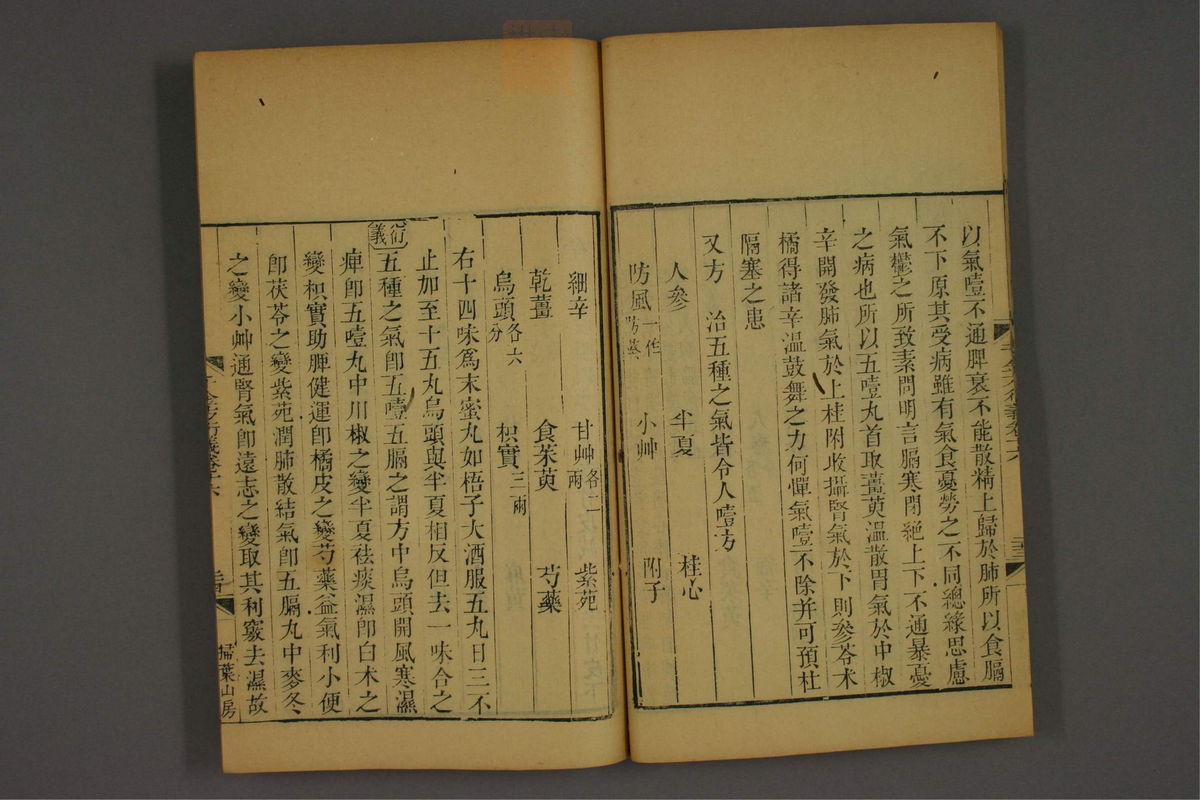 以氣噎不通脾衰不能散精上歸於肺所以食膈
不下原其受病雖有氣食憂勞之不同總緣思慮
氣鬱之所致素問明言膈塞閉絕上下不通暴憂
之病也所以五噎丸首取薑萸溫散胃氣於中椒
辛開發肺氣於上桂附收攝腎氣於下則參苓朮
橘得諸辛溫鼓舞之力何憚氣噎不除并可預杜
隔塞之患
又方　治五種之氣皆令人噎方
人參　半夏　桂心
防風一作防葵　小艸　附子
細辛　甘艸各二兩　紫菀
乾薑　食茱萸　芍藥
烏頭各六分　枳實三兩
右十四味爲末蜜丸如梧子大酒服五丸日三不
止加至十五丸烏頭與半夏相反但去一味合之
衍義五種之氣卽五噎五膈之謂方中烏頭開風寒濕
痺卽五噎丸中川椒之變半夏祛痰濕卽白朮之
變枳實助脾健運卽橘皮之變芍藥益氣利小便
卽茯苓之變紫菀潤肺散結氣卽五膈丸中麥冬
之變小艸通腎氣卽遠志之變取其利竅去濕故
掃葉山房